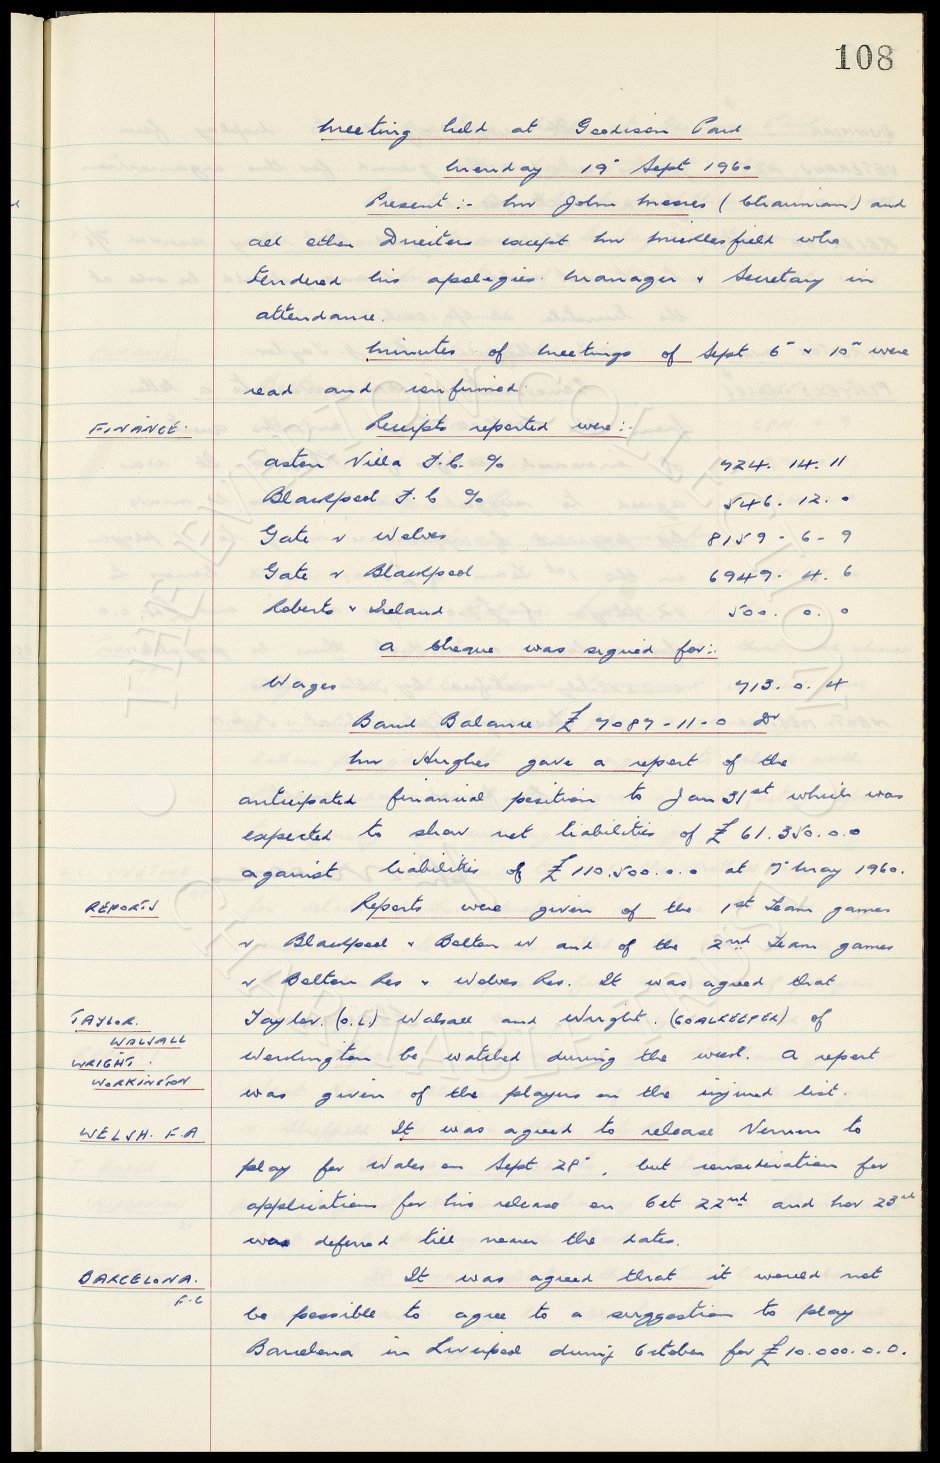 108
Meeting held at Goodison Park
Monday 19" Sept 1960
Present :- Mr John Moores (Chairman) and
all other Directors except Mr Micklesfield who
tendered his apologies. Manager & Secretary in
attendance.
Minutes of meetings of Sept 6" & 10" were
read and confirmed.
FINANCE. Receipts reported were :-
Aston Villa F.C. % 724. 14. 11
Blackpool F.C % 546. 12. 0
Gate v Wolves 8159 - 6 - 9
Gate v Blackpool 6949. 4. 6
Roberts & Ireland 500. 0. 0
A cheque was signed for :-
Wages 713. 0. 4
Bank Balance £ 7087-11-0 Dr
Mr Hughes gave a report of the
anticipated financial position to Jan 31st which was
expected to show net liabilities of £ 61.350.0.0
against liabilities of £ 110.500.0.0 at 7" May 1960.
REPORTS Reports were given of the 1st Team games
v Blackpool & Bolton W and of the 2nd Team games
v Bolton Res & Wolves Res. It was agreed that
TAYLOR. Taylor. (O.L) Walsall and Wright. (GOALKEEPER) of
WALSALL
WRIGHT. Workington be watched during the week. A report
WORKINGTON
was given of the players on the injured list.
WELSH. F.A It was agreed to release Vernon to
play for Wales on Sept 28", but consideration for
applications for his release on Oct 22nd and Nov 23rd
was deferred till nearer the dates.
BARCELONA. It was agreed that it would not
F.C
be possible to agree to a suggestion to play
Barcelona in Liverpool during October for £10.000.0.0.